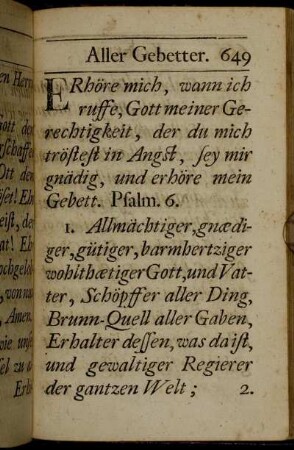 Aller Gebetter. 649
ERhöre mich, wann ich
ruffe, Gott meiner Ge-
rechtigkeit, der du mich
tröſteſt in Angſt, ſey mir
gnädig, und erhöre mein
Gebett. Pſalm. 6.
1. Allmächtiger, gnædi-
ger, gütiger, barmhertziger
wohlthætiger Gott, und Vat-
ter, Schöpffer aller Ding,
Brunn-Quell aller Gaben,
Erhalter deſſen, was da iſt,
und gewaltiger Regierer
der gantzen Welt; 2.